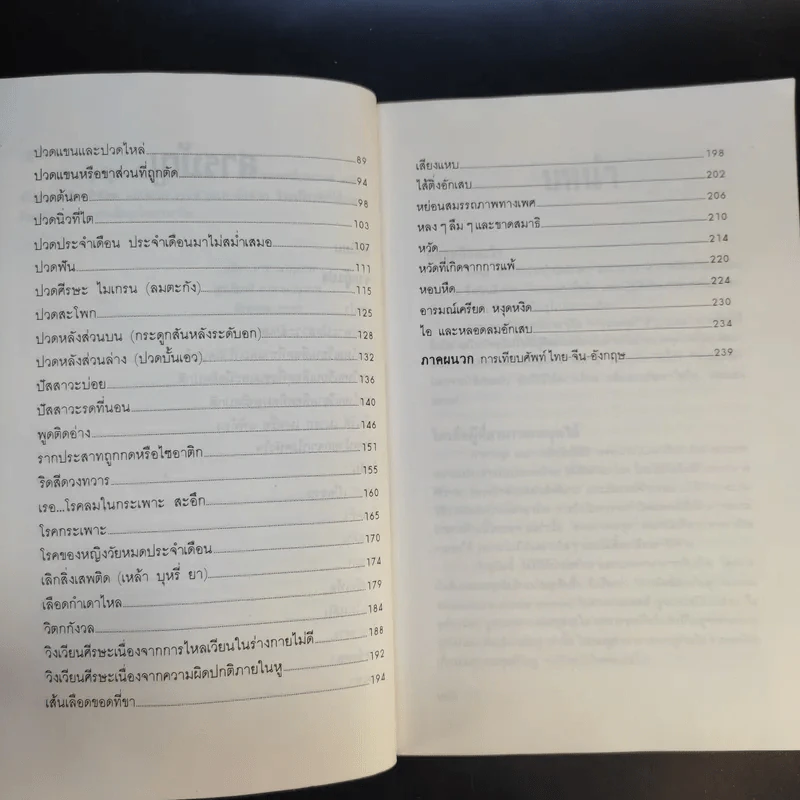 ปวดแขนและปวดไหล่ 89
ปวดแขนหรือขาส่วนที่ถูกตัด 94
ปวดต้นคอ 98
ปวดนิ่วที่ไต 103
ปวดประจำเดือน ประจำเดือนมาไม่สม่ำเสมอ 107
ปวดฟัน 111
ปวดศีรษะ ไมเกรน (ลมตะกัง) 115
ปวดสะโพก 125
ปวดหลังส่วนบน (กระดูกสันหลังระดับอก) 128
ปวดหลังส่วนล่าง (ปวดบั้นเอว) 132
ปัสสาวะบ่อย 136
ปัสสาวะรดที่นอน 140
พูดติดอ่าง 146
รากประสาทถูกกดหรือไซอาติก 151
ริดสีดวงทวาร 155
เรอ...โรคลมในกระเพาะ สะอึก 160
โรคกระเพาะ 165
โรคของหญิงวัยหมดประจำเดือน 170
เลิกสิ่งเสพติด (เหล้า บุหรี่ ยา) 174
เลือดกำเดาไหล 179
วิตกกังวล 184
วิงเวียนศีรษะเนื่องจากการไหลเวียนในร่างกายไม่ดี 188
วิงเวียนศีรษะเนื่องจากความผิดปกติภายในหู 192
เส้นเลือดขอดที่ขา 194
เสียงแหบ 198
ไส้ติ่งอักเสบ 202
หย่อนสมรรถภาพทางเพศ 206
หลง ๆ ลืม ๆ และขาดสมาธิ 210
หวัด 214
หวัดที่เกิดจากการแพ้ 220
หอบหืด 224
อารมณ์เครียด หงุดหงิด 230
ไอ และหลอดลมอักเสบ 234
ภาคผนวก การเทียบศัพท์ ไทย-จีน-อังกฤษ 239